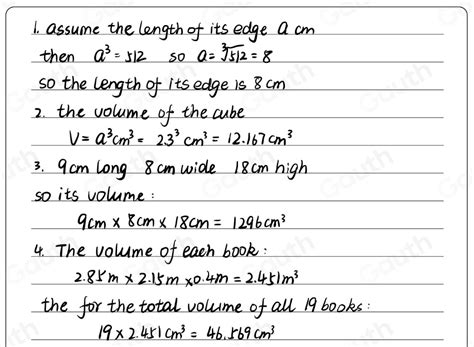 1. assume the length of its edge a cm
then a³ = 512 so a = ∛512 = 8
so the length of its edge is 8 cm
2. the volume of the cube
V = a³cm³ = 23³ cm³ = 12.167 cm³
3. 9cm long 8cm wide 18cm high
so its volume :
9cm × 8cm × 18cm = 1296 cm³
4. The volume of each book :
2.85m × 2.15m × 0.4m = 2.451m³
the for the total volume of all 19 books :
19 × 2.451 cm³ = 46.569 cm³